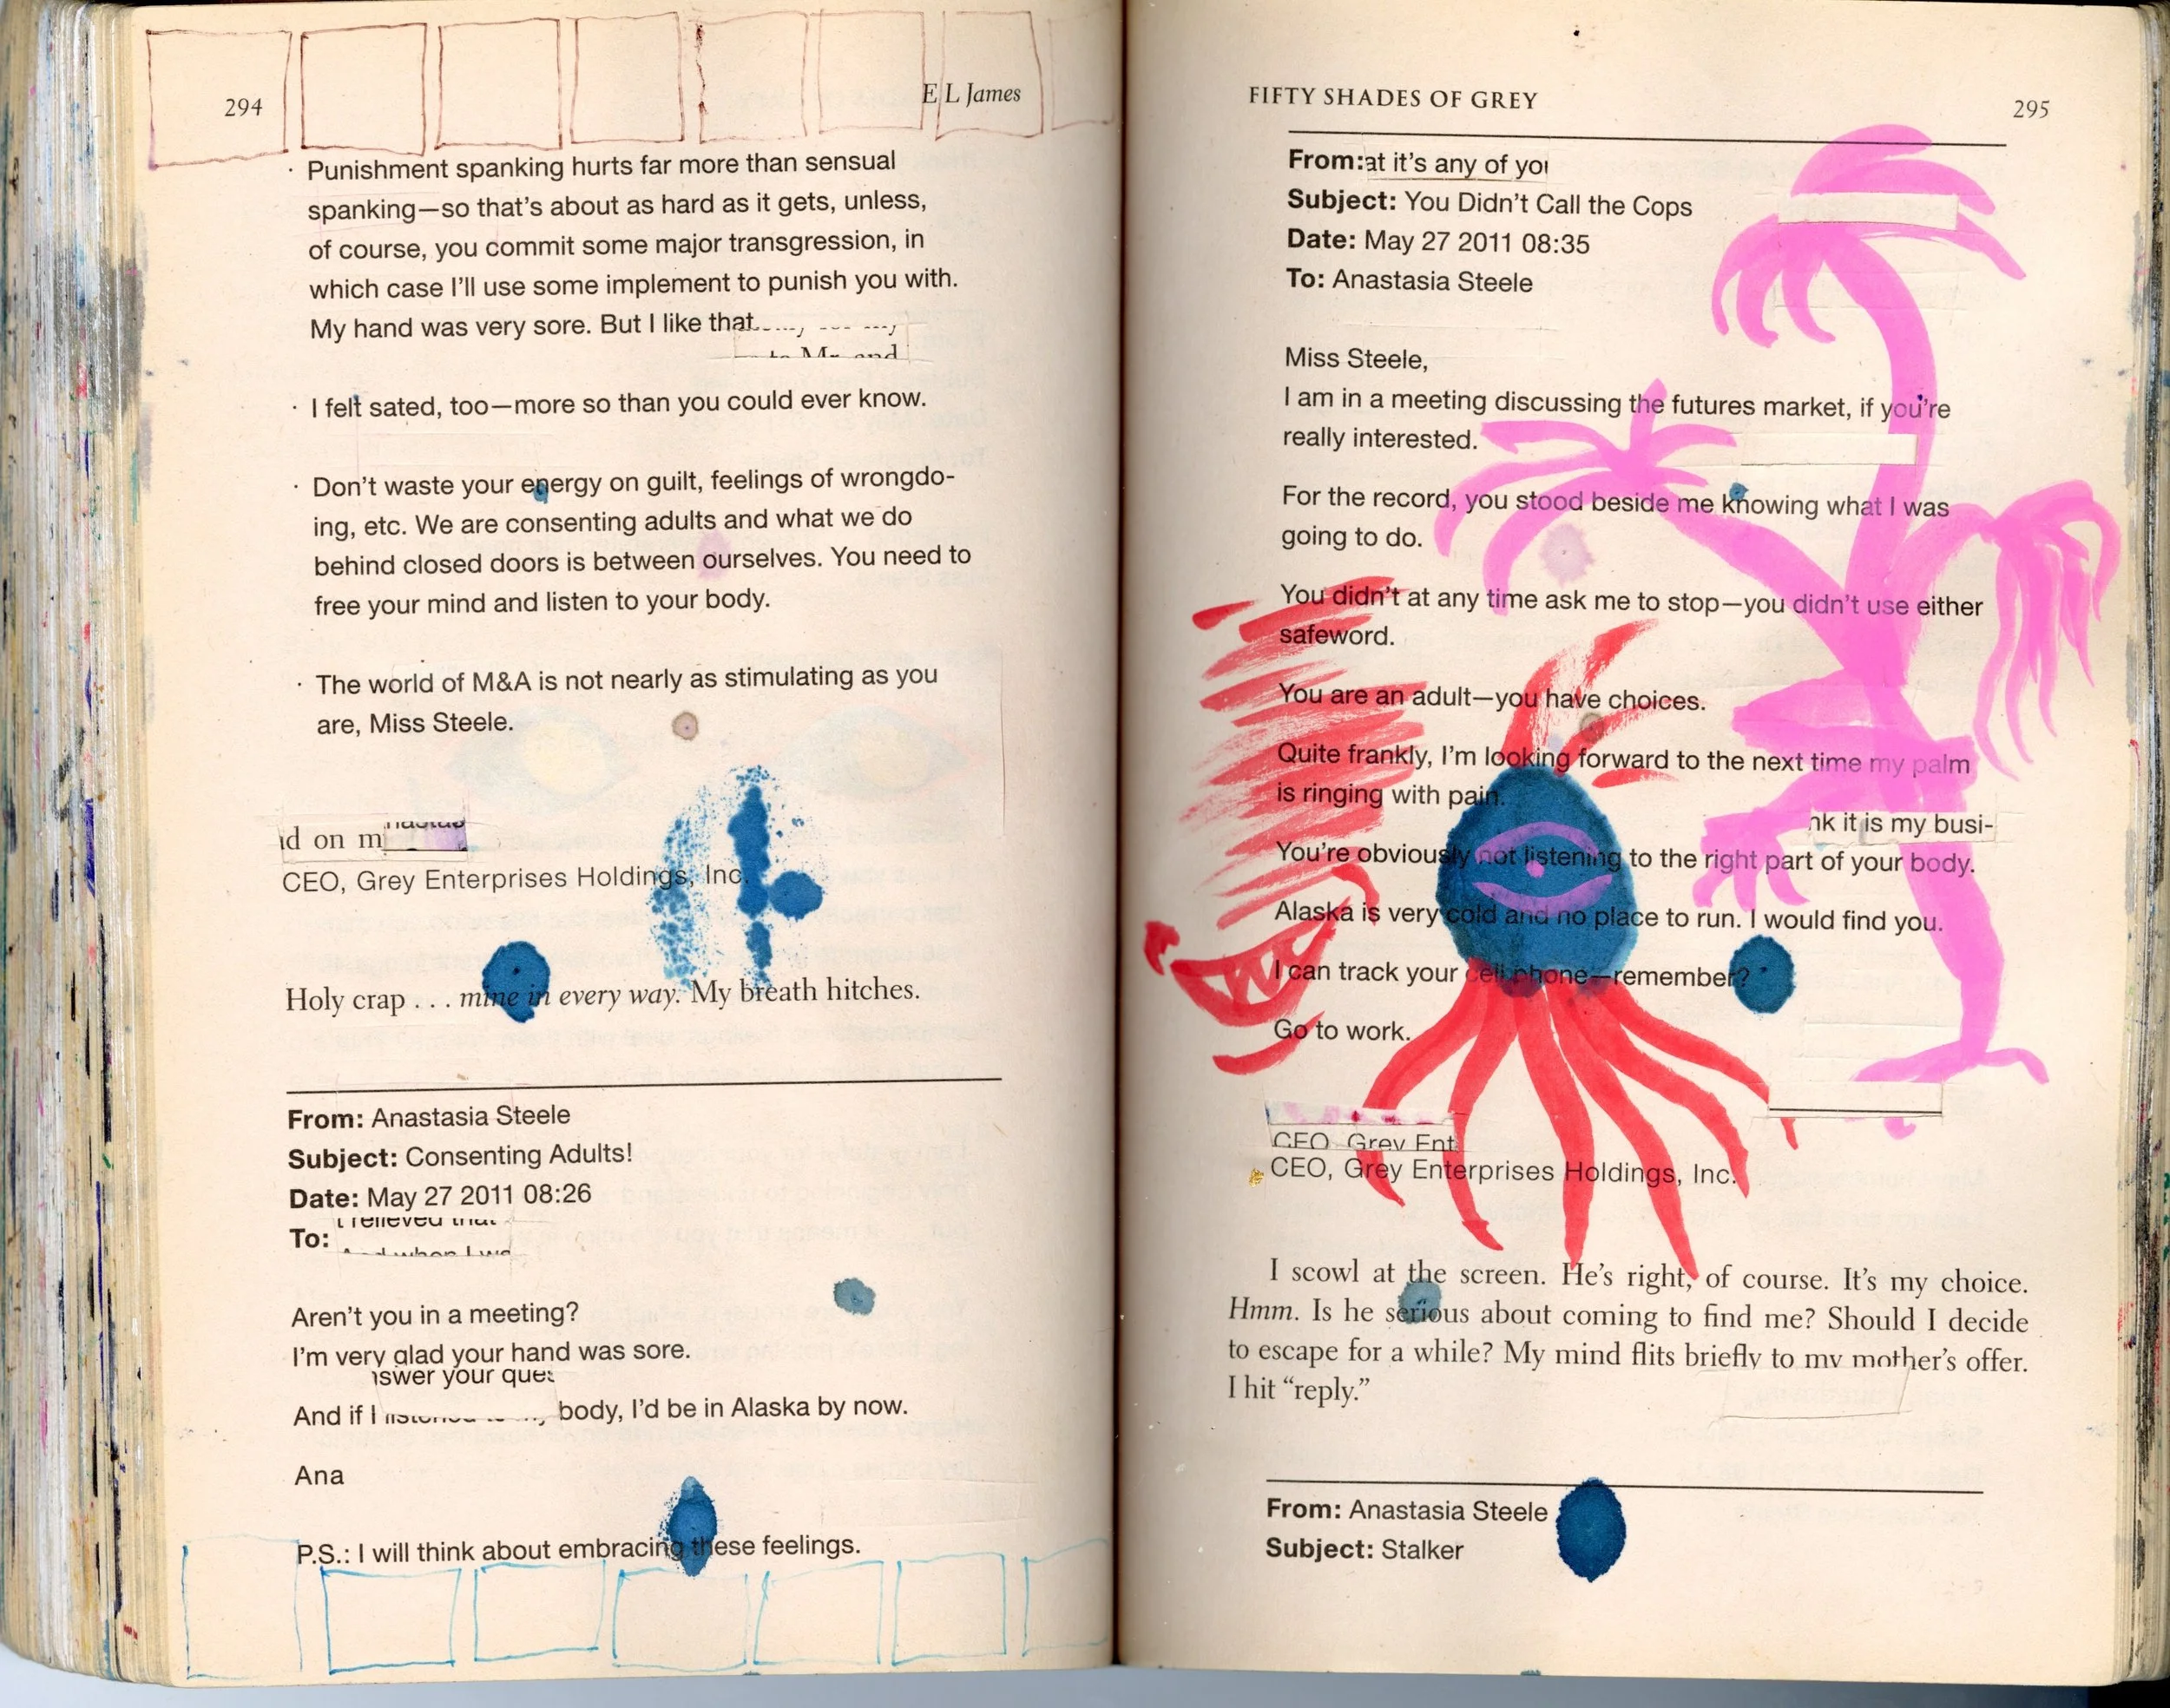 294
E L James
· Punishment spanking hurts far more than sensual
spanking—so that's about as hard as it gets, unless,
of course, you commit some major transgression, in
which case I'll use some implement to punish you with.
My hand was very sore. But I like that.
to Mr. and
· I felt sated, too—more so than you could ever know.
· Don't waste your energy on guilt, feelings of wrongdo-
ing, etc. We are consenting adults and what we do
behind closed doors is between ourselves. You need to
free your mind and listen to your body.
· The world of M&A is not nearly as stimulating as you
are, Miss Steele.
d on m
CEO, Grey Enterprises Holdings, Inc.
Holy crap . . . mine in every way. My breath hitches.
From: Anastasia Steele
Subject: Consenting Adults!
Date: May 27 2011 08:26
To:
Aren't you in a meeting?
I'm very glad your hand was sore.
swer your ques
And if I listened to my body, I'd be in Alaska by now.
Ana
P.S.: I will think about embracing these feelings.
FIFTY SHADES OF GREY
295
From: at it's any of you
Subject: You Didn't Call the Cops
Date: May 27 2011 08:35
To: Anastasia Steele
Miss Steele,
I am in a meeting discussing the futures market, if you're
really interested.
For the record, you stood beside me knowing what I was
going to do.
You didn't at any time ask me to stop—you didn't use either
safeword.
You are an adult—you have choices.
Quite frankly, I'm looking forward to the next time my palm
is ringing with pain.
nk it is my busi-
You're obviously not listening to the right part of your body.
Alaska is very cold and no place to run. I would find you.
I can track your cell phone—remember?
Go to work.
CEO, Grey Ent
CEO, Grey Enterprises Holdings, Inc.
I scowl at the screen. He's right, of course. It's my choice.
Hmm. Is he serious about coming to find me? Should I decide
to escape for a while? My mind flits briefly to my mother's offer.
I hit “reply.”
From: Anastasia Steele
Subject: Stalker